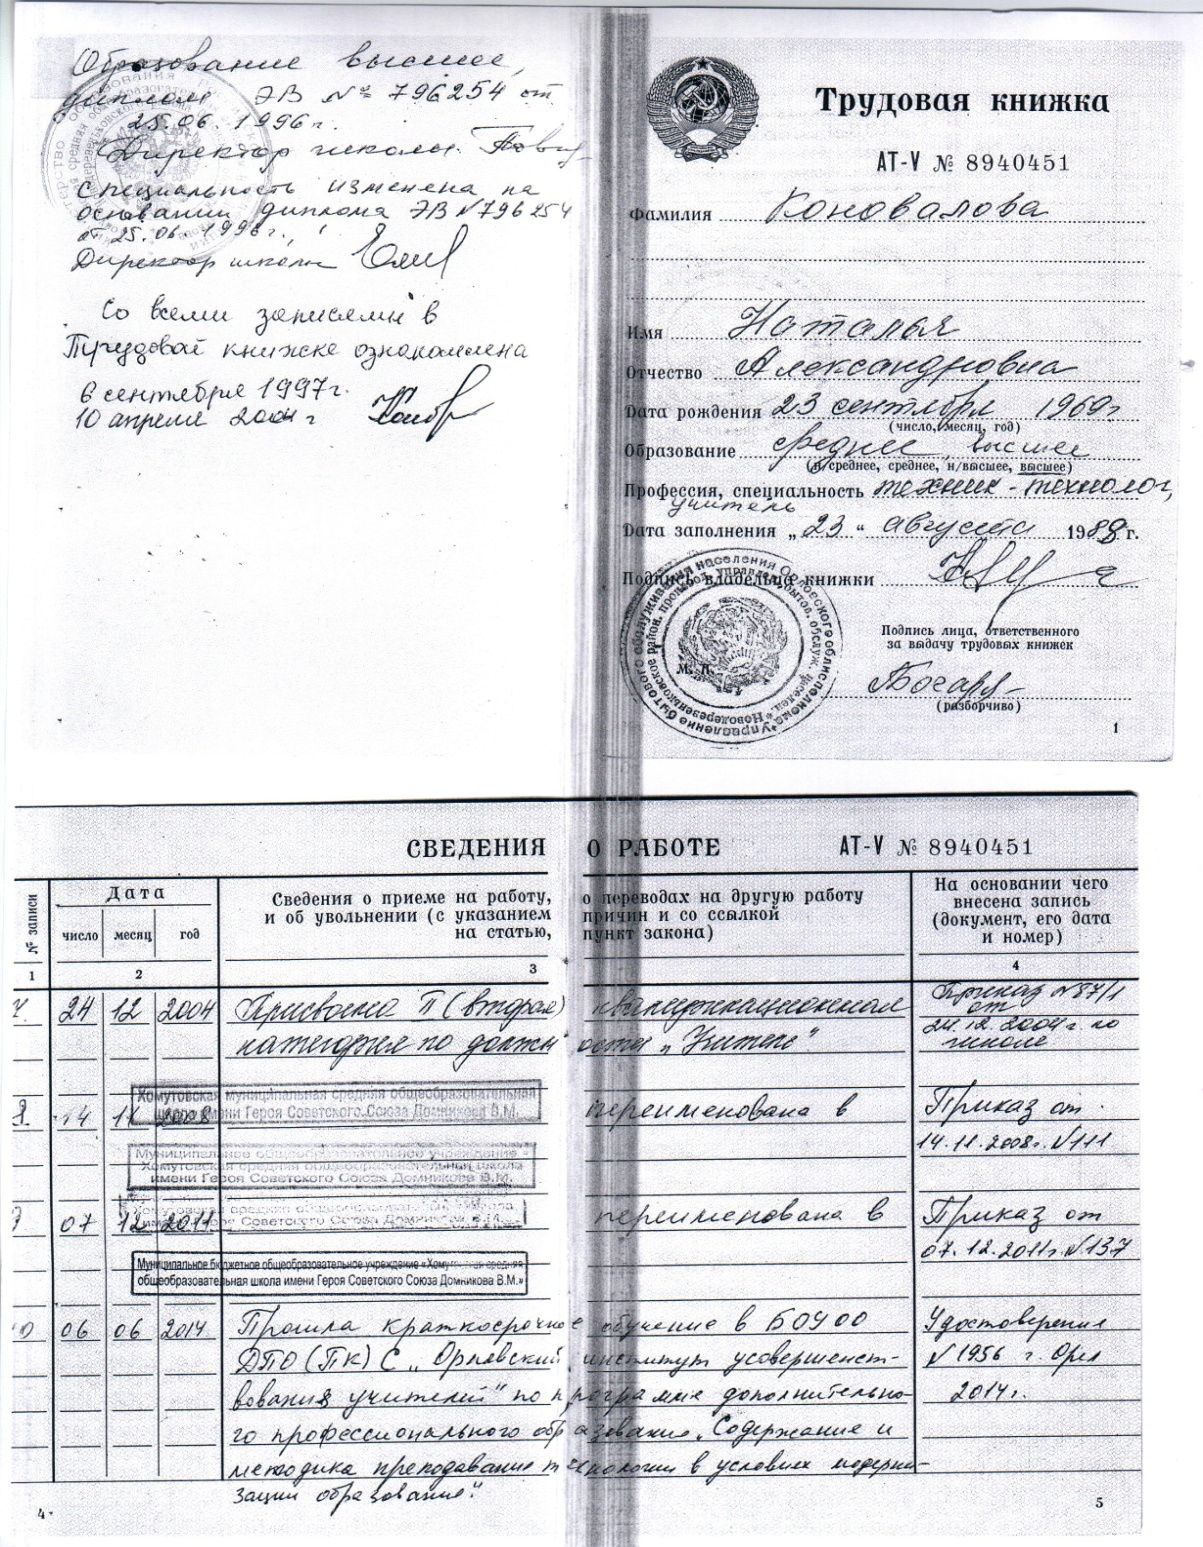 Образование высшее,
диплом ЭВ № 796254 от
25.06.1996г.
Директор школы
специальность изменена на
основании диплома ЭВ №796254
от 25.06.1996г.,
Директор школы
Со всеми записями в
Трудовой книжке ознакомлена
6 сентября 1997г.
10 апреля 2001 г
Трудовая книжка
АТ-V № 8940451
Фамилия Коновалова
Имя Наталья
Отчество Александровна
Дата рождения 23 сентября 1969г
(число, месяц, год)
Образование среднее, высшее
(н/среднее, среднее, н/высшее, высшее)
Профессия, специальность техник-технолог,
учитель
Дата заполнения „23“ августа 1988 г.
Подпись владельца книжки
Подпись лица, ответственного
за выдачу трудовых книжек
М. П.
(разборчиво)
1
СВЕДЕНИЯ О РАБОТЕ АТ-V № 8940451
№ записи
Дата
число месяц год
Сведения о приеме на работу, о переводах на другую работу
и об увольнении (с указанием причин и со ссылкой
на статью, пункт закона)
На основании чего
внесена запись
(документ, его дата
и номер)
1 2 3 4
24 12 2004 Присвоена II (вторая) квалификационная
категория по должности „Учитель“
Приказ №87/1
от
24.12.2004г. по
школе
Хомутовская муниципальная средняя общеобразовательная
школа имени Героя Советского Союза Домникова В.М.
14 11 2008 переименована в
Приказ от
14.11.2008г. №111
Муниципальное общеобразовательное учреждение -
Хомутовская средняя общеобразовательная школа
имени Героя Советского Союза Домникова В.М.
Хомутовская средняя общеобразовательная школа
имени Героя Советского Союза Домникова В.М.
07 12 2011 переименована в
Приказ от
07.12.2011г. №137
Муниципальное бюджетное общеобразовательное учреждение «Хомутовская средняя
общеобразовательная школа имени Героя Советского Союза Домникова В.М.»
06 06 2014 Прошла краткосрочное обучение в БОУ ОО
ДПО (ПК) С „Орловский институт усовершенст-
вования учителей“ по программе дополнительно-
го профессионального образования „Содержание и
методика преподавания технологии в условиях модерни-
зации образования“.
Удостоверение
№1956 г. Орел
2014г.
4
5